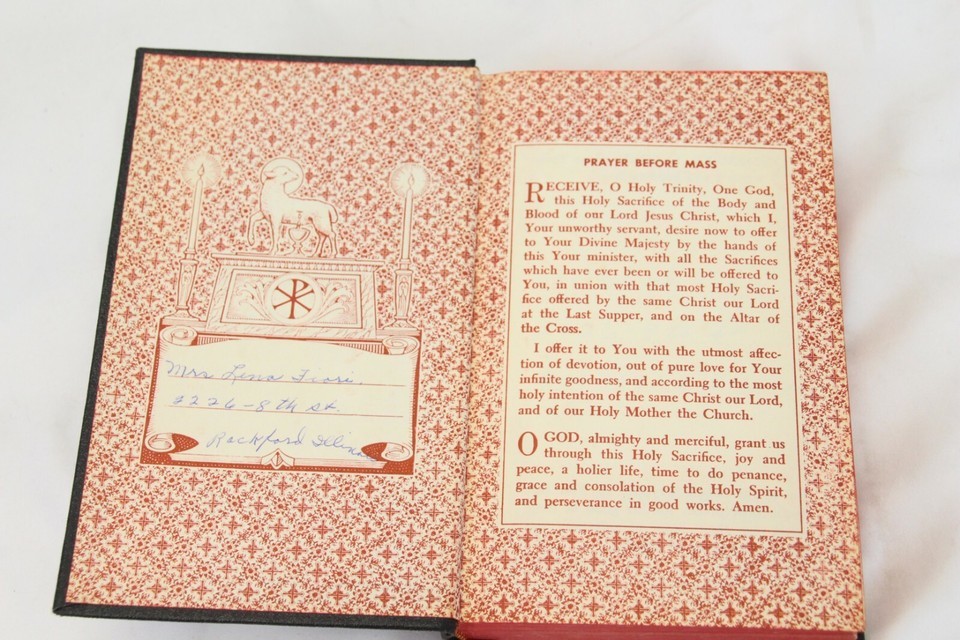 Mrs Lena Fiori.
2226-8th St.
Rockford Illinois
PRAYER BEFORE MASS
RECEIVE, O Holy Trinity, One God,
this Holy Sacrifice of the Body and
Blood of our Lord Jesus Christ, which I,
Your unworthy servant, desire now to offer
to Your Divine Majesty by the hands of
this Your minister, with all the Sacrifices
which have ever been or will be offered to
You, in union with that most Holy Sacri-
fice offered by the same Christ our Lord
at the Last Supper, and on the Altar of
the Cross.
I offer it to You with the utmost affec-
tion of devotion, out of pure love for Your
infinite goodness, and according to the most
holy intention of the same Christ our Lord,
and of our Holy Mother the Church.
O GOD, almighty and merciful, grant us
through this Holy Sacrifice, joy and
peace, a holier life, time to do penance,
grace and consolation of the Holy Spirit,
and perseverance in good works. Amen.